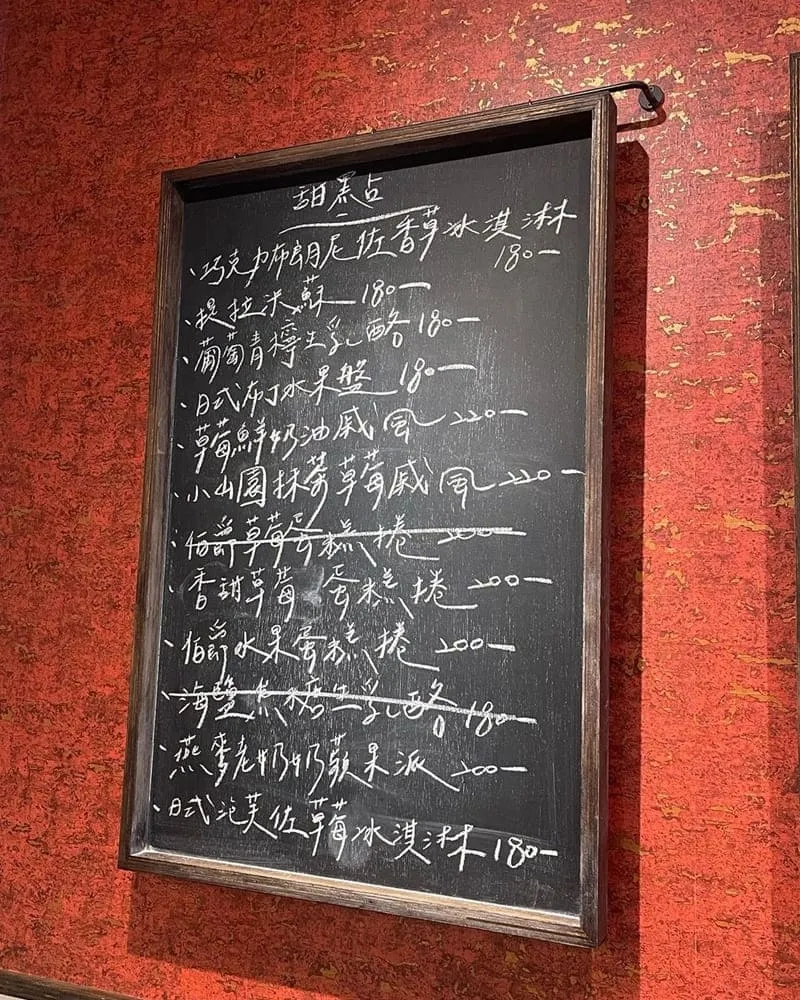 甜点
、巧克力布朗尼佐香草冰淇淋
180-
、提拉米蘇 180-
、葡萄青檸生乳酪 180-
、日式布丁水果盤 180-
、草莓鮮奶油戚風 220-
、小山園抹茶草莓戚風 220-
、伯爵草莓蛋糕捲 200-
、香甜草莓蛋糕捲 200-
、伯爵水果蛋糕捲 200-
、海鹽焦糖生乳酪 180-
、燕麥老奶奶蘋果派 200-
、日式泡芙佐草莓冰淇淋 180-